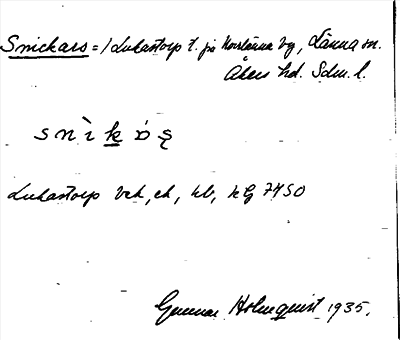 Snickars = / Lukastorp t. på Norrlänna by, Länna sn.
Åkers hd. Sdm. l.
snìkạ́ș
Lukastorp bek, ek, kb, kG 7450
Gunnar Holmquist 1935.